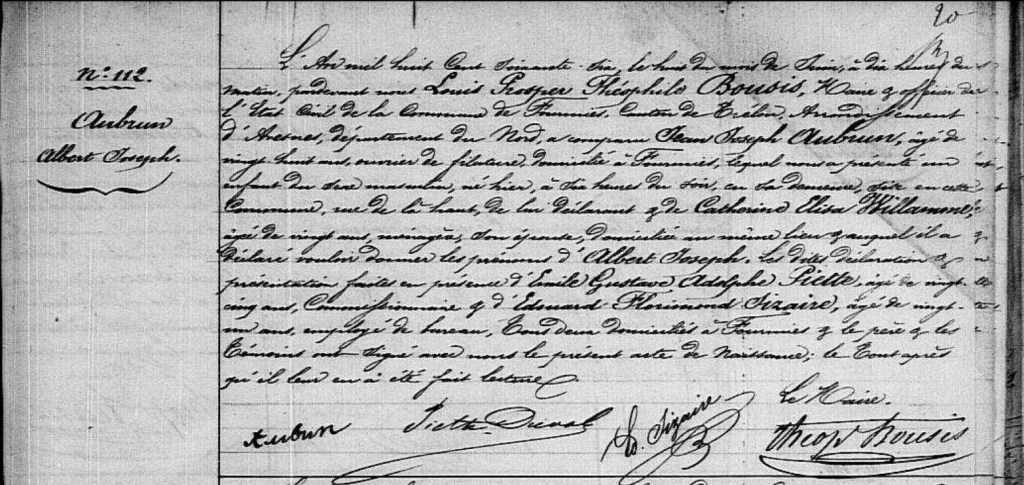 20
N° 112.
Aubrun
Albert Joseph.
L'An mil huit Cent soixante-six, le huit du mois de Juin, à dix heures du
matin, pardevant nous Louis Prosper Théophile Bousis, Maire & officier de
l'Etat Civil de la Commune de Fourmies, Canton de Trélon, Arrondissement
d'Avesnes, département du Nord, a comparu Jean Joseph Aubrun, âgé de
vingt huit ans, ouvrier de filature, domicilié à Fourmies, lequel nous a présenté un
enfant du sexe masculin, né hier, à six heures du soir, en sa demeure, sise en cette
Commune, rue de là haut, de lui déclarant & de Catherine Elisa Willamme,
âgée de vingt ans, ménagère, son épouse, domiciliée au même lieu & auquel il a
déclaré vouloir donner les prénoms d'Albert Joseph. Les dites déclaration &
présentation faites en présence d'Emile Gustave Adolphe Piette, âgé de vingt-
cinq ans, Commissionnaire & d'Edouard Florimond Sizaire, âgé de vingt-
un ans, employé de bureau, Tous deux domiciliés à Fourmies & le père & les
Témoins ont signé avec nous le présent acte de Naissance; le Tout après
qu'il leur en a été fait lecture.
Le Maire.
Aubrun
Piette-Duval
Ed. Sizaire
Théop. Bousis